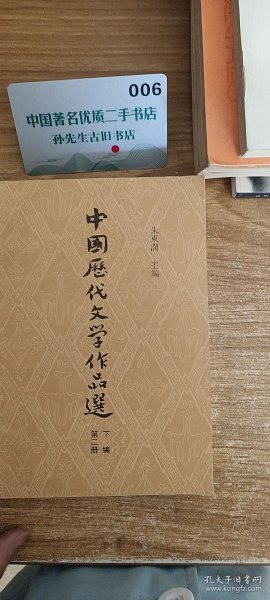 006
中国著名优质二手书店
孙先生古旧书店
中國歷代文学作品選
朱東潤 主編
下編
第二册
孔夫子旧书网
www.kongfz.com